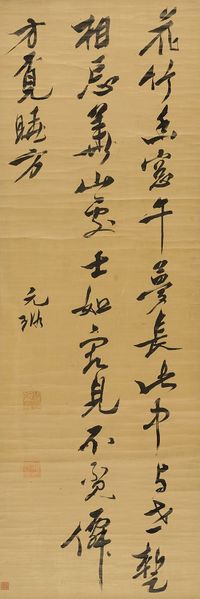 花竹幽窓午夢長此中与世暫
相忘華山處士如容見不覓僊
方覓睡方
元璐